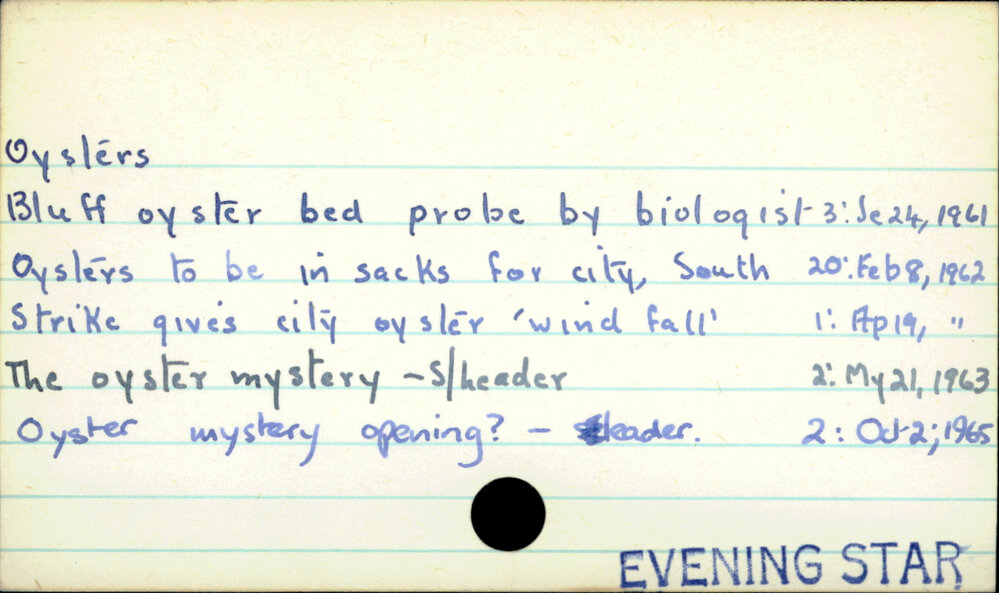 Oysters
Bluff oyster bed probe by biologist 3: Se 24, 1961
Oysters to be in sacks for city, South 20: Feb 8, 1962
Strike gives city oyster 'wind fall' 1: Ap 19, "
The oyster mystery - S/header 2: My 21, 1963
Oyster mystery opening? - leader. 2: Oct 2, 1965
EVENING STAR